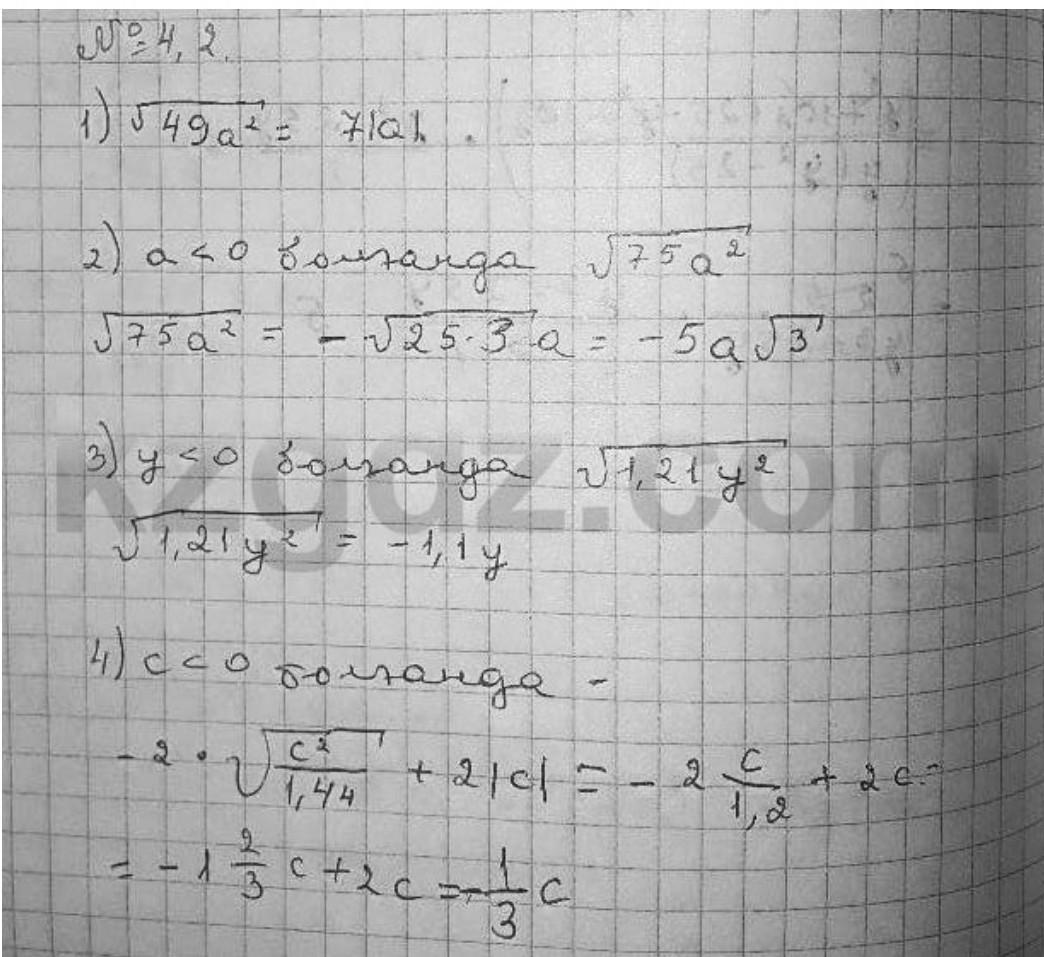 № 4,2.
1) √49a² = 7|a|.
2) a < 0 болғанда √75a²
√75a² = - √25·3 a = -5a√3
3) y < 0 болғанда √1,21y²
kzgdz.com
√1,21y² = -1,1y
4) c < 0 болғанда -
-2 · √c²/1,44 + 2|c| = -2 c/1,2 + 2c =
= -1 2/3 c + 2c = -1/3 c